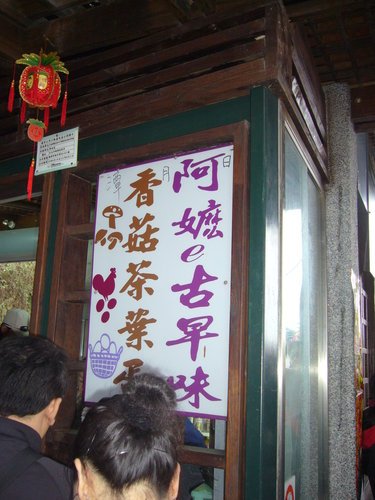 阿嬤e古早味
香菇茶葉蛋
日月潭